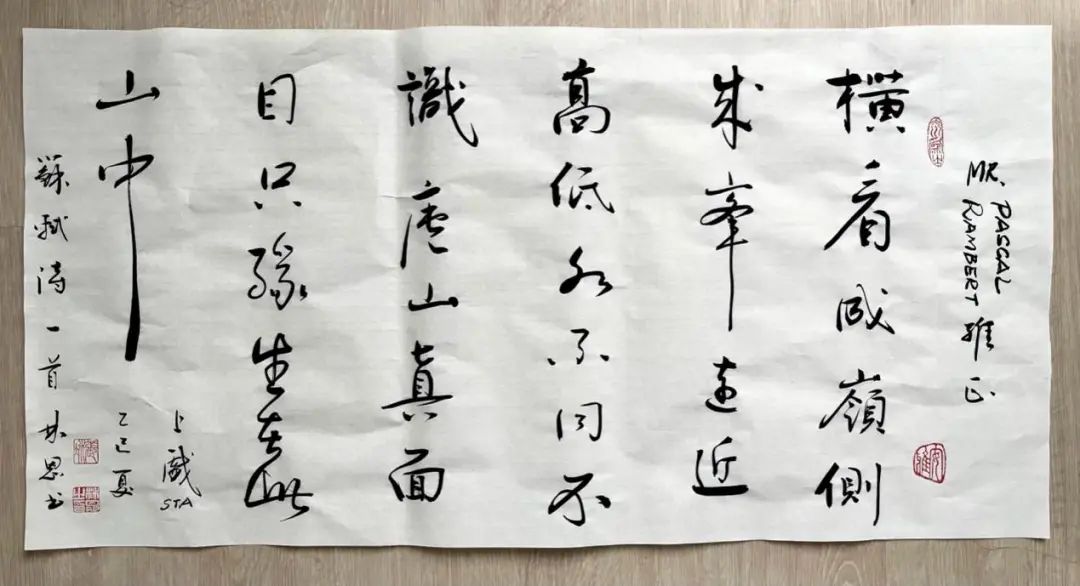 MR. PASCAL
RAMBERT 雅正
橫看成嶺側
成峯遠近
高低各不同不
識廬山真面
目只緣生在此
山中
上戲
STA
乙巳夏
蘇軾詩一首 林恩书